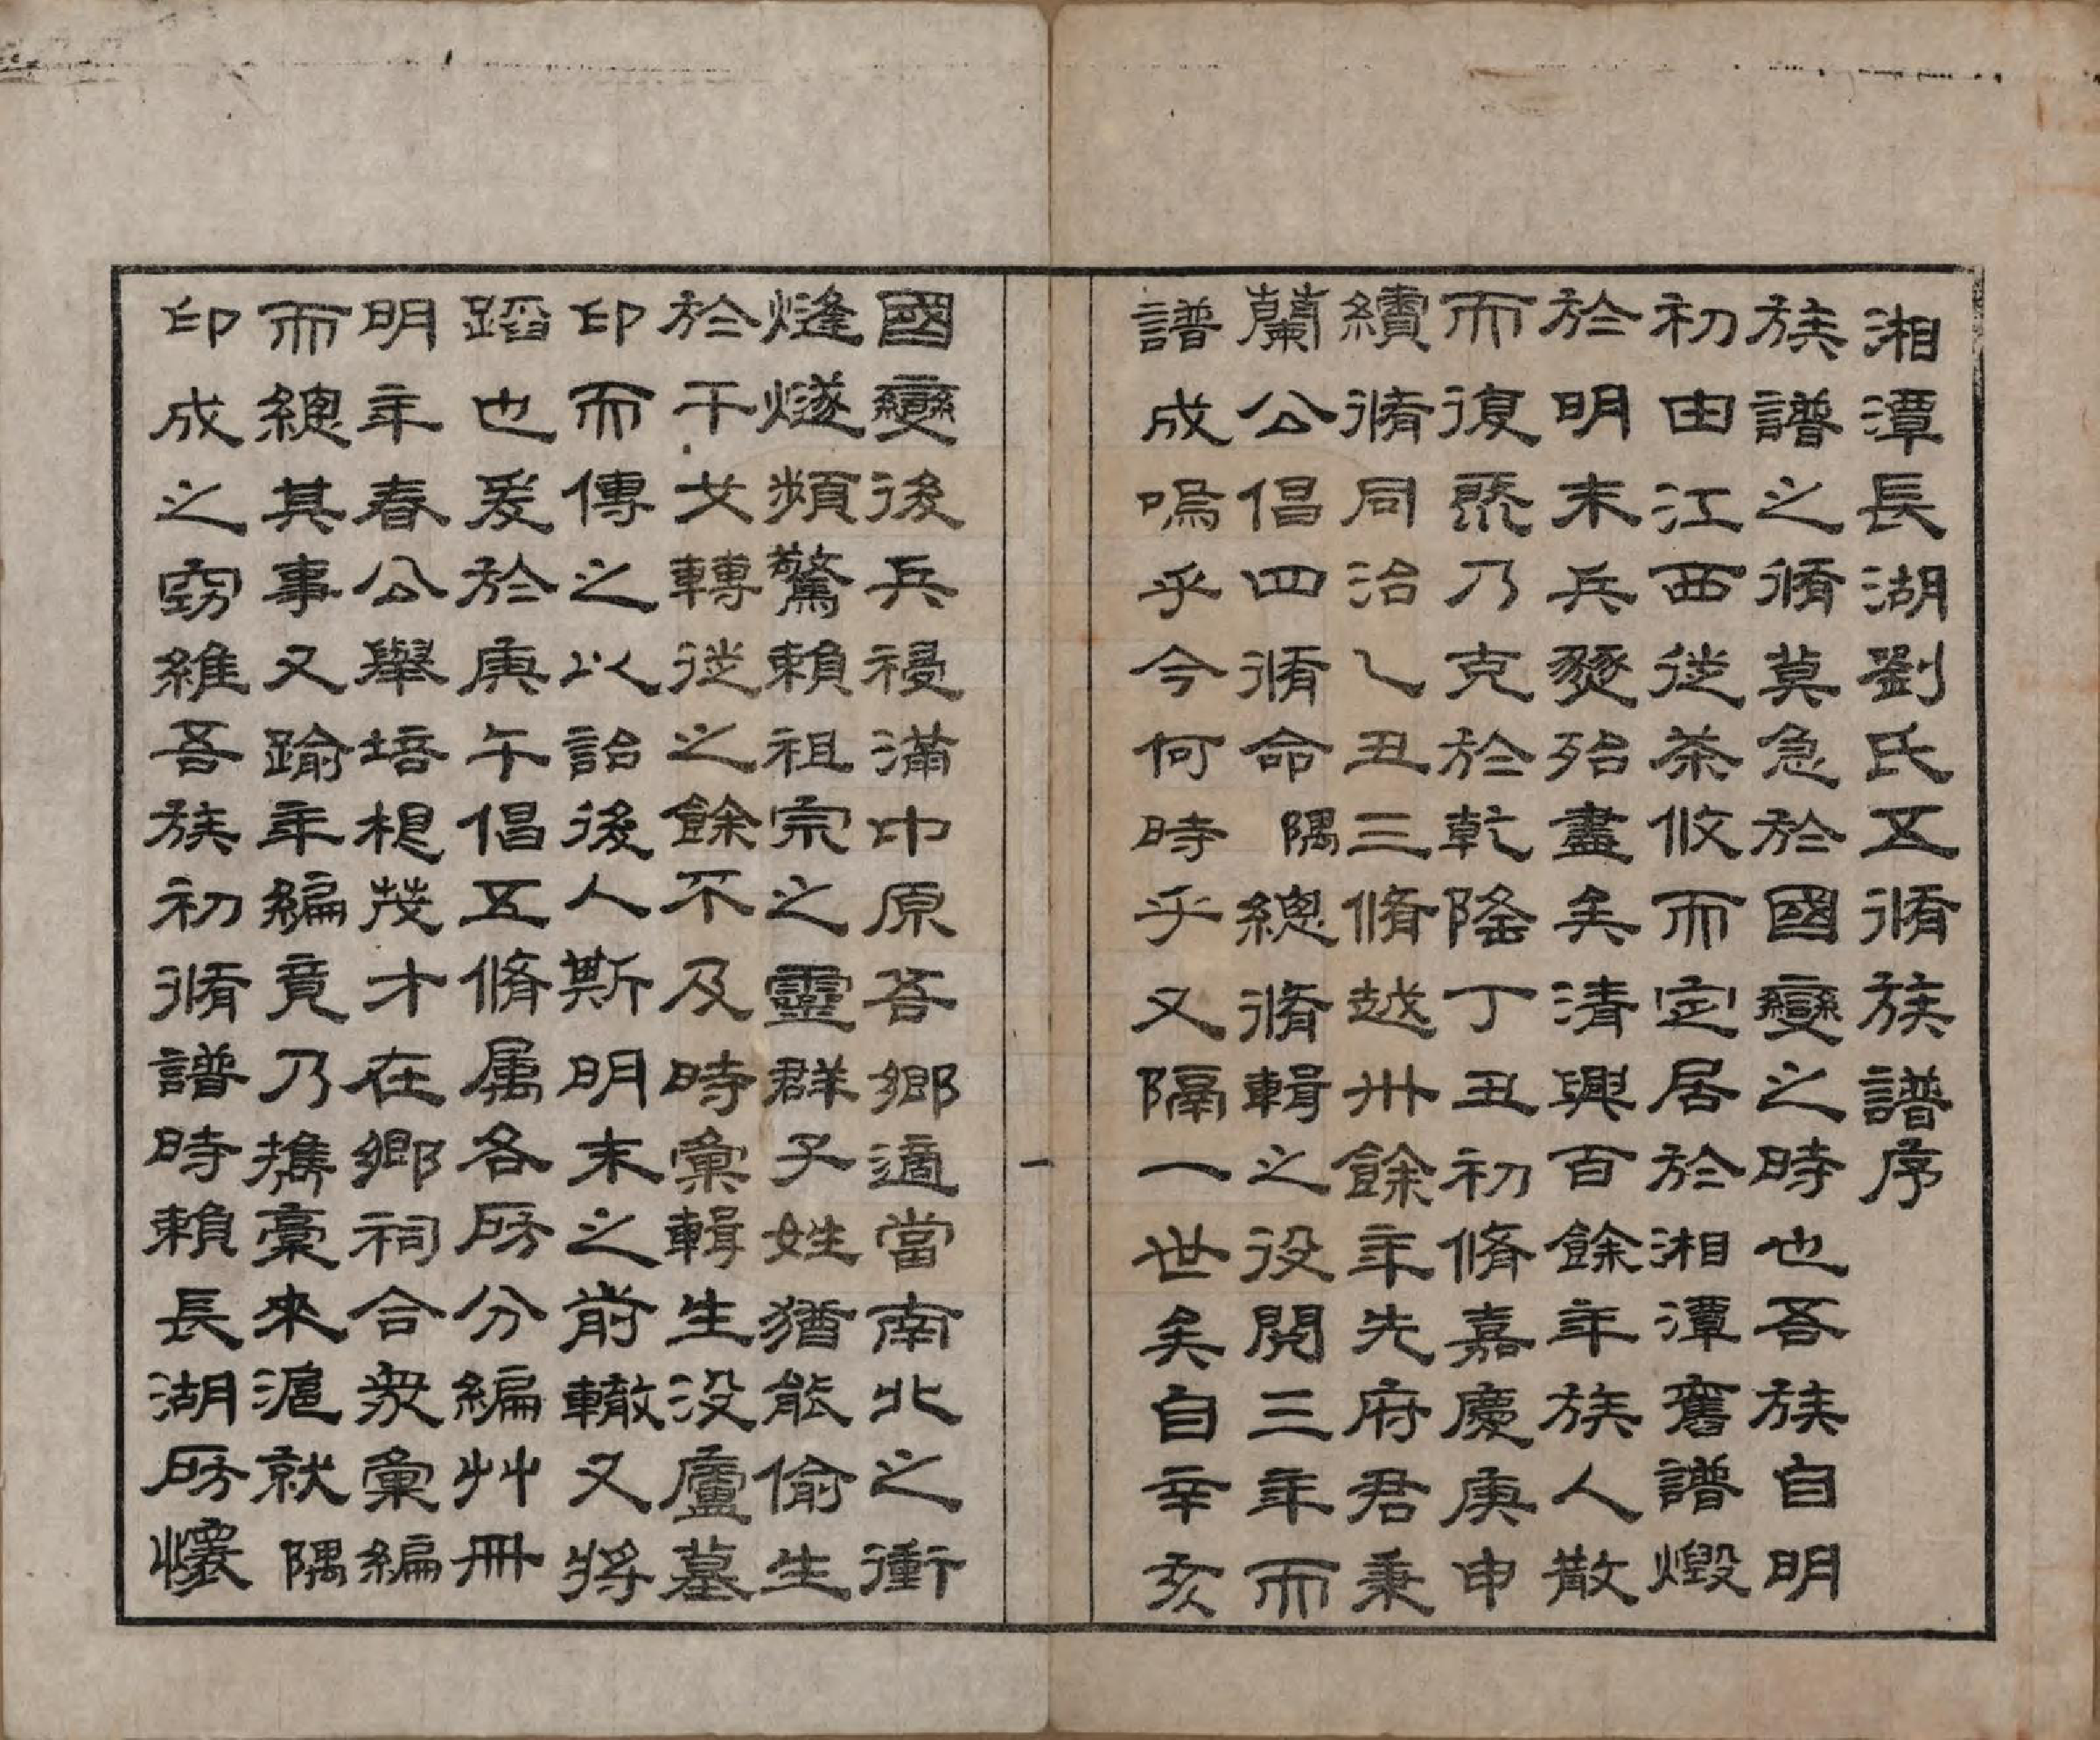 湘潭長湖劉氏五脩族譜序
族譜之脩莫急於國變之時也吾族自明
初由江西徙茶攸而定居於湘潭舊譜燬
於明末兵燹殆盡矣清興百餘年族人散
而復旣乃克於乾隆丁丑初脩嘉慶庚申
續脩同治乙丑三脩越卅餘年先府君秉
蘭公倡四脩命隅總脩輯之役閱三年而
譜成嗚乎今何時乎又隔一世矣自辛亥
一
國變後兵祲滿中原吾鄉適當南北之衝
烽燧頻驚賴祖宗之靈群子姓猶能偷生
於干戈轉徙之餘不及時彙輯生沒廬墓
印而傳之以詒後人斯明末之前轍又將
蹈也爰於庚午倡五脩属各房分編艸冊
明年春公舉培根茂才在鄉祠合衆彙編
而總其事又踰年編竟乃攜稾來滬就隅
印成之竊維吾族初脩譜時賴長湖房懷